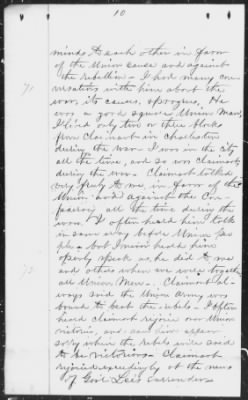 10
minds to each other in favor
of the Union cause and against
the rebellion - I had many con
versations with him about the
war, its causes, & progress. He
was a good square Union Man,
I lived only two or three blocks
from Claimant in Charleston
during the war - I was in the city
all the time, and so was Claimant
during the war - Claimant talked
very freely to me in favor of the
Union and against the Con-
federacy all the time during the
war. I often heard him talk
in same way before Union peo
ple - but I never heard him
openly speak as he did to me
and others when we were together
all Union Men - Claimant al-
ways said the Union Army was
bound to beat the rebels - I often
heard claimant rejoice over Union
victories, and
sorry when the rebels were said
to be victorious - Claimant
rejoiced exceedingly at the news
of Gen'l Lee's surrender